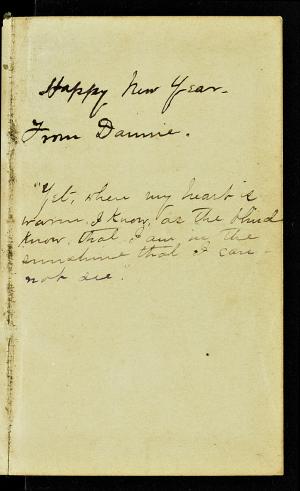 Happy New Year.
From Dannie.
"Yet, when my heart is
warm, I know, as the blind
know, that I am in the
sunshine that I can-
not see."